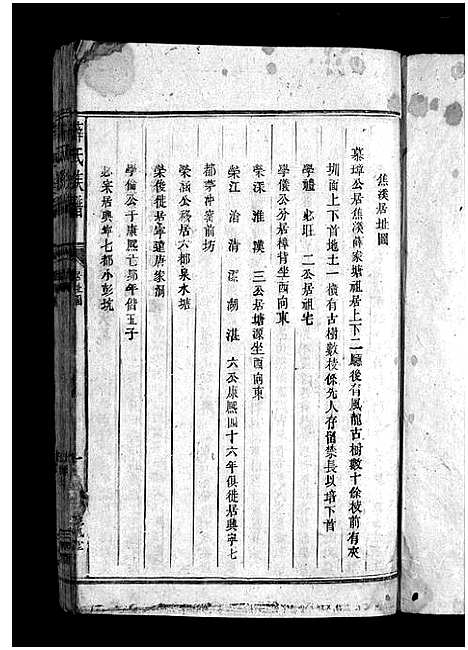 焦溪居址圖
慕璋公居焦溪薛家塘祖居上下二廳後有鳳龍古樹數十餘枝前有夾
圳面上下首地土一橫有古樹數棱係先人存留禁長以培下首
學禮 必旺 二公居祖宅
學儀公分居樟背坐酉向東
榮深 淮 漢 三公居塘源坐酉向東
榮江 治 清 深 湖 湛 六公康熙四十六年俱徙居興寧七
都茅冲窠前坊
榮涵公移居六都泉水塘
榮俊徙居寧遠唐家洞
學倫公于康熙亡第年偕五子
必荣居興寧七都小彭坑
薛氏族譜
居址圖